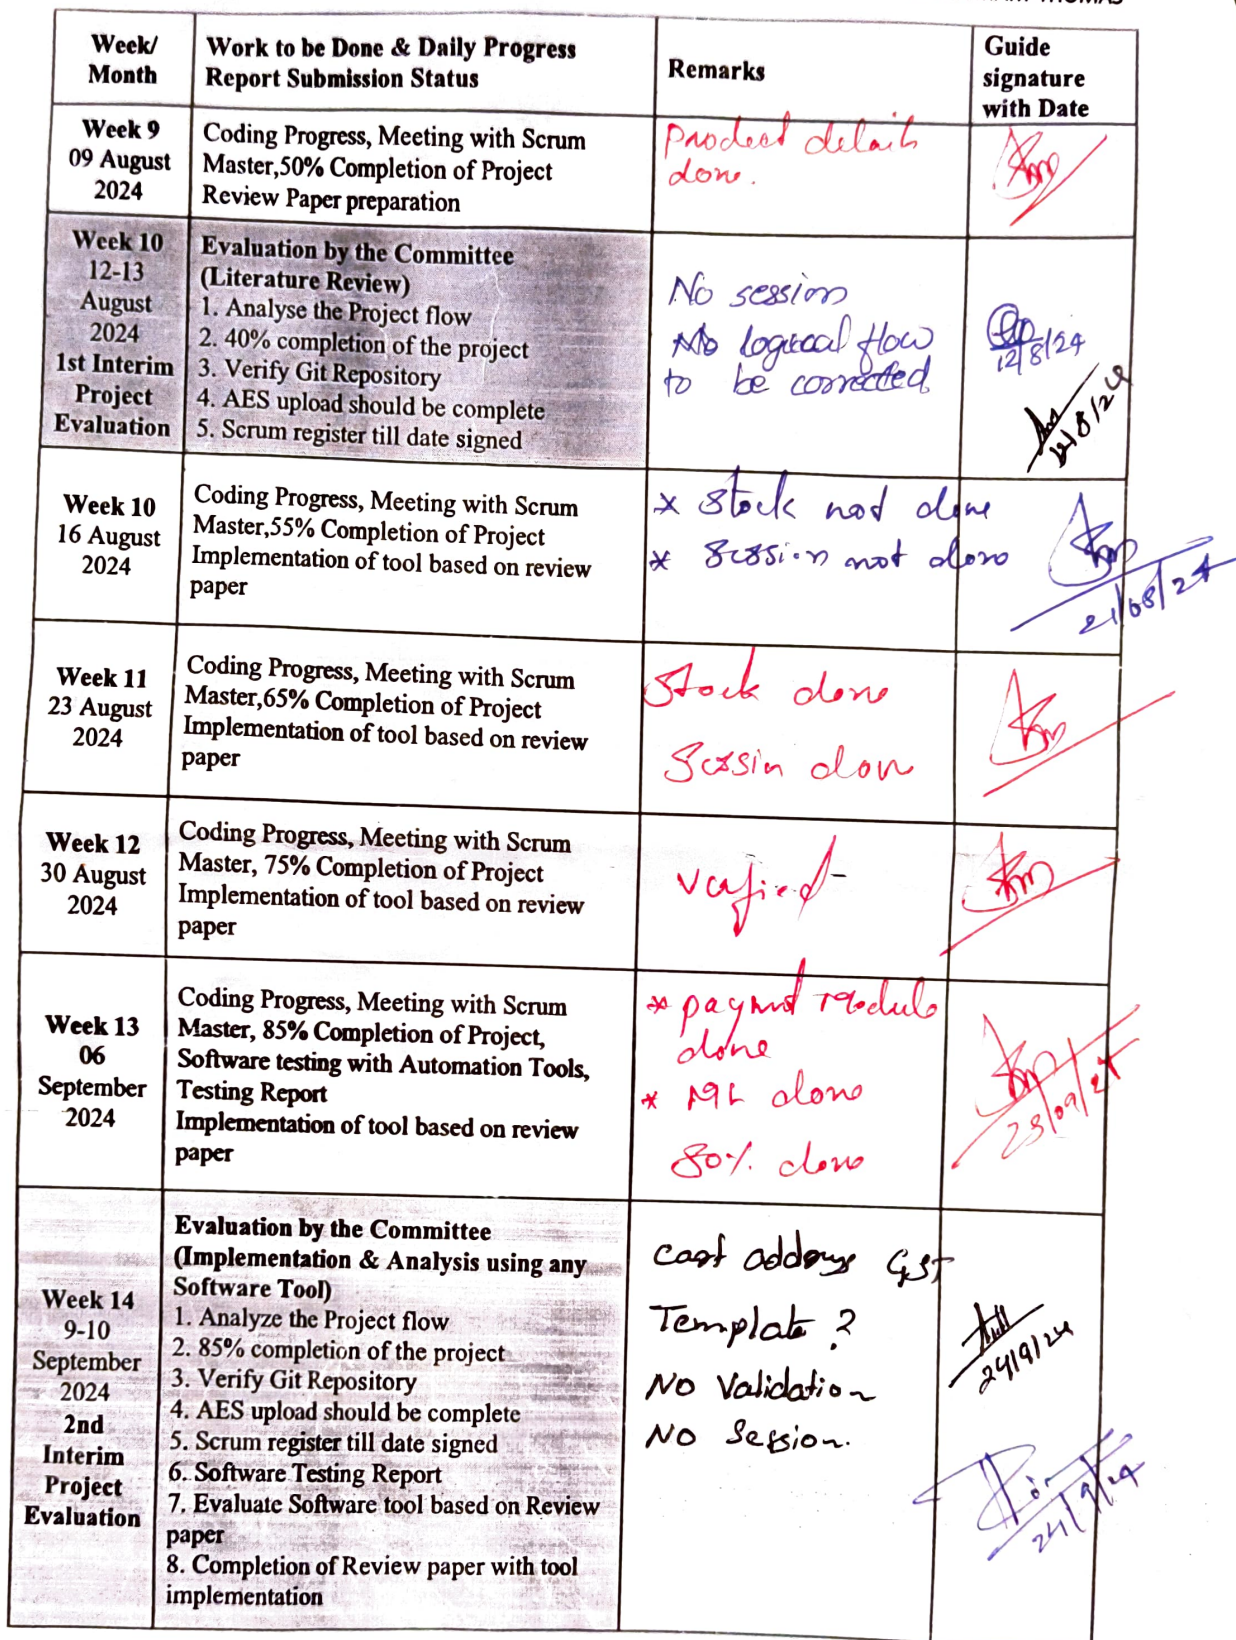 Week/
Month
Work to be Done & Daily Progress
Report Submission Status
Remarks
Guide
signature
with Date
Week 9
09 August
2024
Coding Progress, Meeting with Scrum
Master,50% Completion of Project
Review Paper preparation
Product details
done.
Week 10
12-13
August
2024
1st Interim
Project
Evaluation
Evaluation by the Committee
(Literature Review)
1. Analyse the Project flow
2. 40% completion of the project
3. Verify Git Repository
4. AES upload should be complete
5. Scrum register till date signed
No session
No logical flow
to be corrected
12/8/24
12/8/24
Week 10
16 August
2024
Coding Progress, Meeting with Scrum
Master,55% Completion of Project
Implementation of tool based on review
paper
* Stock not done
* Session not done
21/08/24
Week 11
23 August
2024
Coding Progress, Meeting with Scrum
Master,65% Completion of Project
Implementation of tool based on review
paper
Stock done
Sessin done
Week 12
30 August
2024
Coding Progress, Meeting with Scrum
Master, 75% Completion of Project
Implementation of tool based on review
paper
Verified
Week 13
06
September
2024
Coding Progress, Meeting with Scrum
Master, 85% Completion of Project,
Software testing with Automation Tools,
Testing Report
Implementation of tool based on review
paper
* payment module
done
* ML done
80% done
23/09/24
Week 14
9-10
September
2024
2nd
Interim
Project
Evaluation
Evaluation by the Committee
(Implementation & Analysis using any
Software Tool)
1. Analyze the Project flow
2. 85% completion of the project
3. Verify Git Repository
4. AES upload should be complete
5. Scrum register till date signed
6. Software Testing Report
7. Evaluate Software tool based on Review
paper
8. Completion of Review paper with tool
implementation
Cart address GST
Template ?
No Validation
No Session.
24/9/24
24/9/24